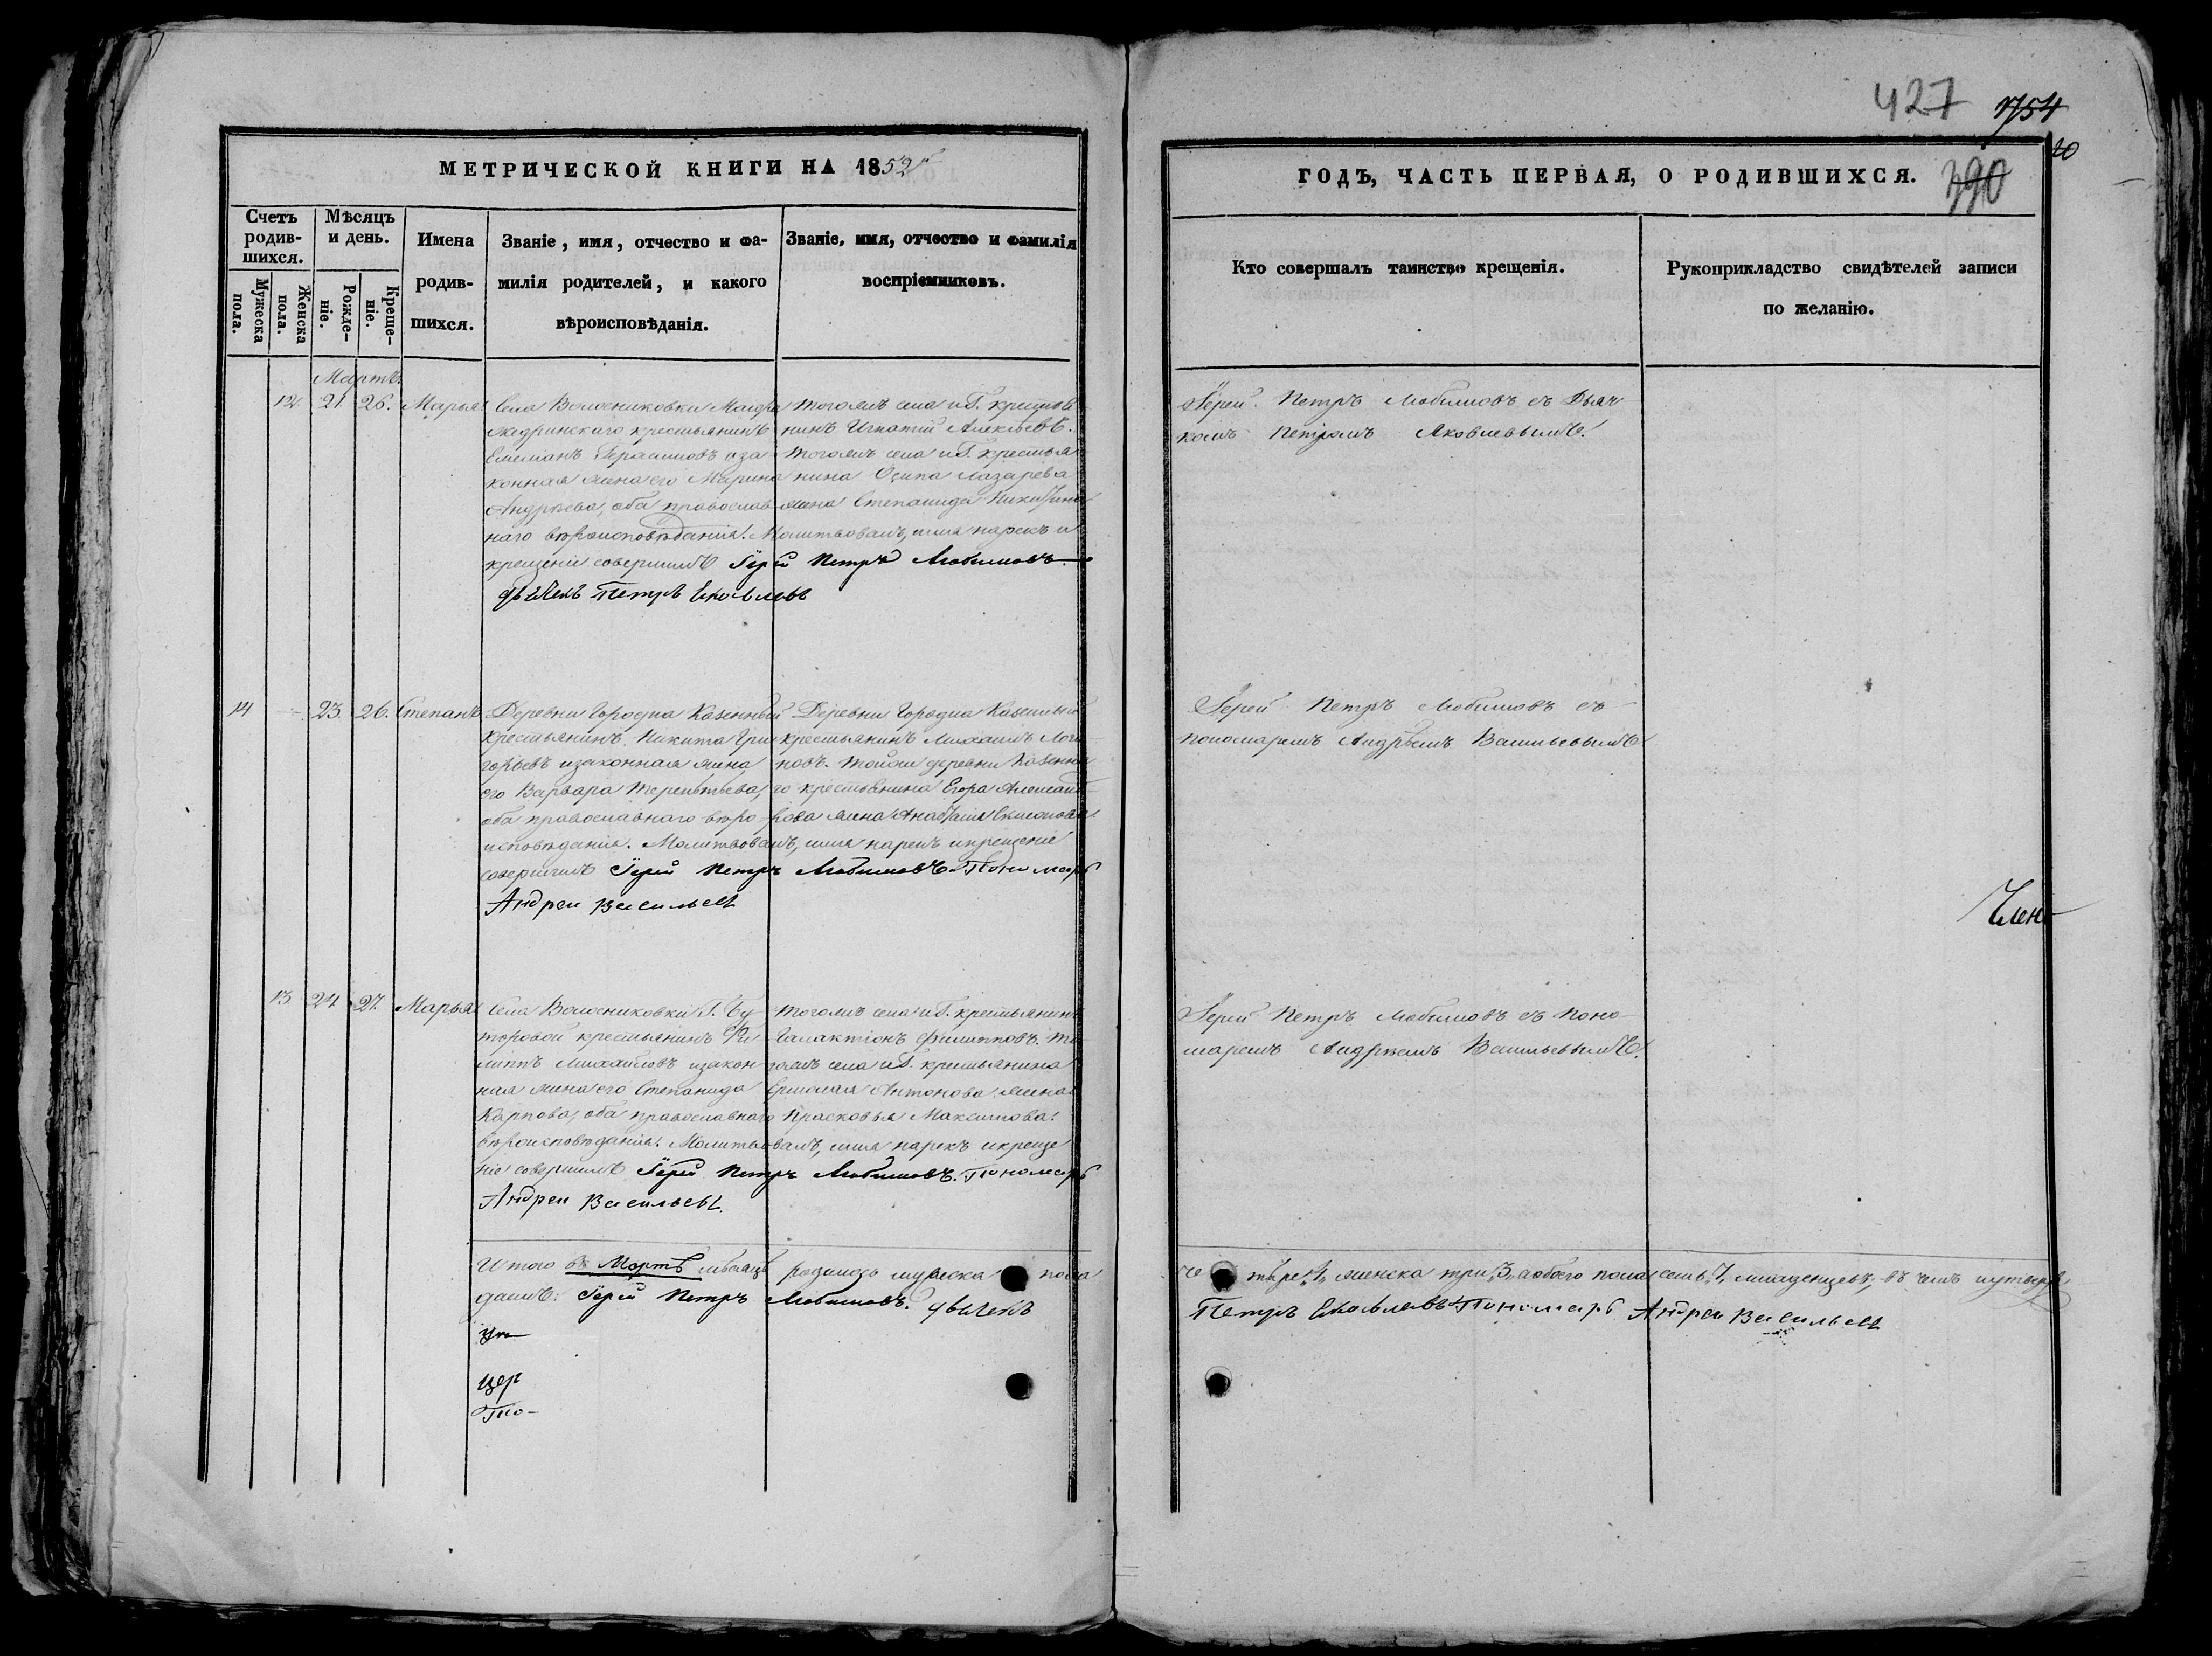 427 1754
20
390
МЕТРИЧЕСКОЙ КНИГИ НА 1852й
ГОДЪ, ЧАСТЬ ПЕРВАЯ, О РОДИВШИХСЯ.
Счетъ родив-шихся.
Мужеска пола.
Женска пола.
Мѣсяцъ и день.
Рожде-ніе.
Креще-ніе.
Имена
родив-
шихся.
Званіе, имя, отчество и фа-
милія родителей, и какого
вѣроисповѣданія.
Званіе, имя, отчество и фамилія
воспріемниковъ.
Кто совершалъ таинство крещенія.
Рукоприкладство свидѣтелей записи
по желанію.
Мартъ.
12 21 26. Марья
Села Волосниковки Маіора
крестьянинъ
Емеліанъ Герасимовъ и за-
конная жена его Марина
Андрѣева, оба православ-
наго вѣроисповѣданія. Молитвовалъ, имя нарекъ и
крещеніе совершилъ Іерей Петръ Любимовъ.
дьячекъ Петръ Яковлевъ
тогожъ села и Г. крестья-
нинъ Игнатій Алексѣевъ.
тогожъ села и Г. крестья-
нина Осипа Лазарева
жена Степанида Никитина
Іерей Петръ Любимовъ съ Дьяч-
комъ Петромъ Яковлевымъ.
14 - 23 26. Степанъ
Деревни Городна Казенный
Крестьянинъ Никита Гри-
горьевъ и законная жена
его Варвара Терентьева,
оба православнаго вѣро-
исповѣданія. Молитвовалъ, имя нарекъ и крещеніе
совершилъ Іерей Петръ Любимовъ. Пономарь
Андреи Васильевъ
Деревни Городна Казенный
крестьянинъ Михаилъ Логи-
новъ. тойже деревни Казенна-
го крестьянина Егора Александ-
рова жена
Іерей Петръ Любимовъ съ
пономаремъ Андрѣемъ Васильевымъ
Член
13 24 27. Марья
Села Волосниковки Г. Бу-
торовой крестьянинъ Фи-
липпъ Михайловъ и закон-
ная жена его Степанида
Карпова, оба православнаго
вѣроисповѣданія. Молитвовалъ, имя нарекъ и креще-
ніе совершилъ Іерей Петръ Любимовъ. Пономарь
Андреи Васильевъ.
тогожъ села и Г. крестьянинъ
Галактіонъ Филипповъ. то-
гожъ села и Г. крестьянина
Ермолая Антонова жена
Прасковья Максимова.
Іерей Петръ Любимовъ съ Поно-
маремъ Андрѣемъ Васильевымъ.
Итого въ Мартѣ мѣсяцѣ родилось мужеска пола
че тыре, 4, женска три, 3, а обоего пола семь, 7, младенцевъ, въ чемъ и утверж-
даемъ: Іерей Петръ Любимовъ. дьячекъ
Петръ Яковлевъ Пономарь Андреи Васильевъ
цер
По-